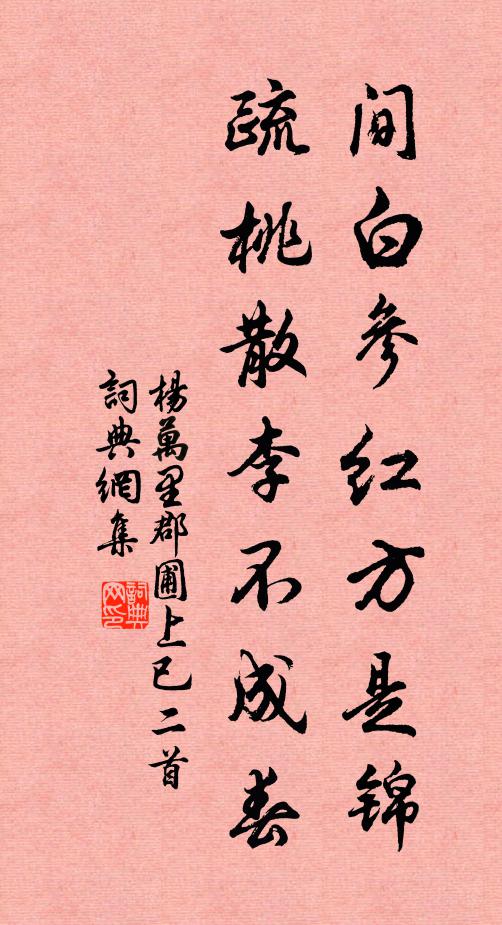 间白参红方是锦
疏桃散李不成春
楊萬里郡圃上巳二首
詞典網集
詞典
网印